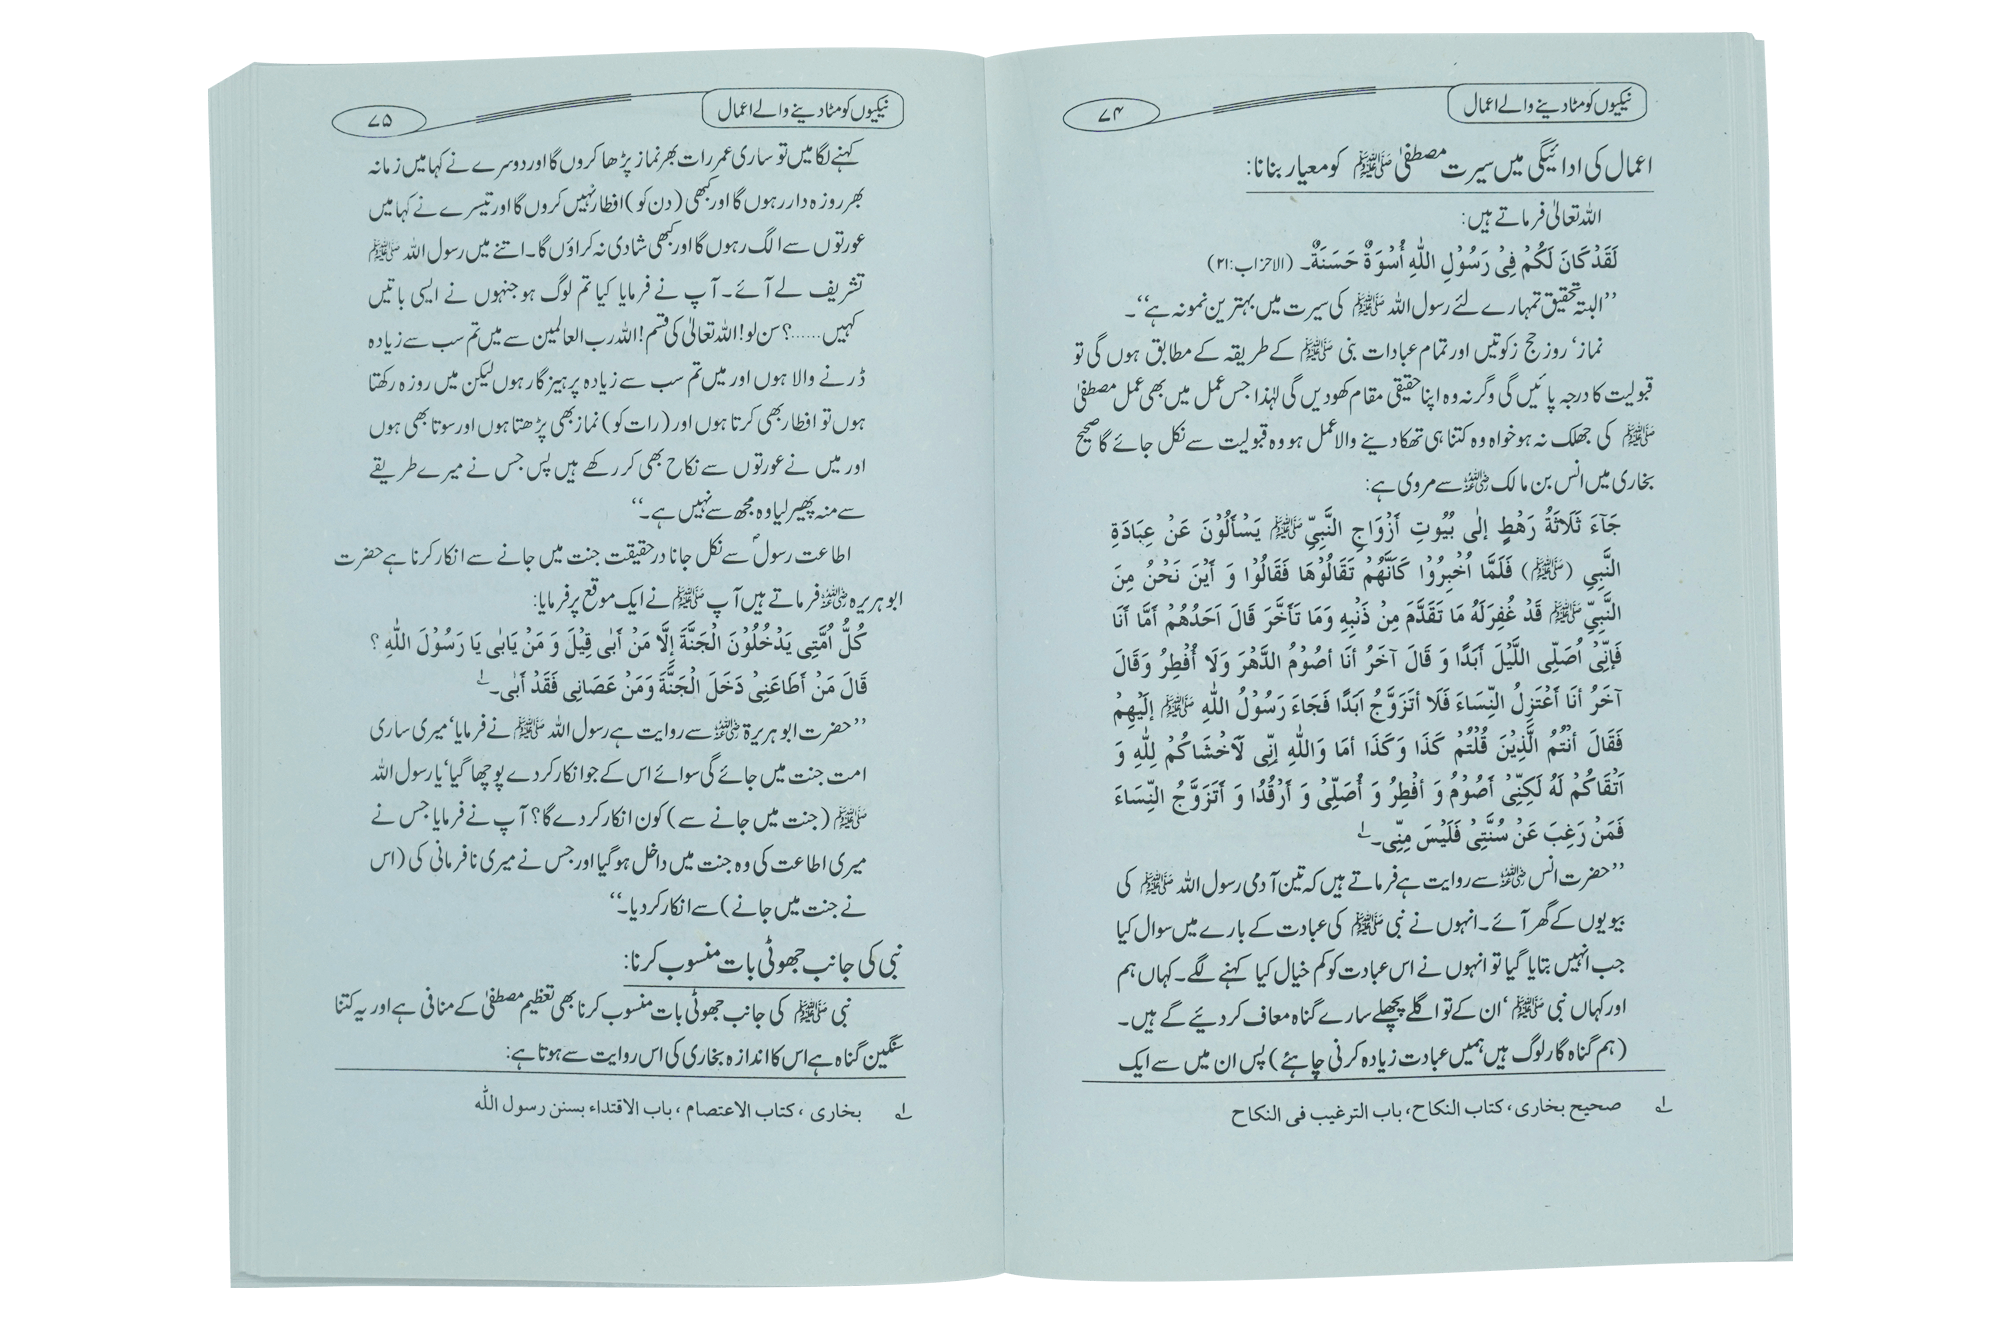 نیکیوں کو مٹا دینے والے اعمال
۷۴
اعمال کی ادائیگی میں سیرت مصطفیٰ ﷺ کو معیار بنانا:
اللہ تعالیٰ فرماتے ہیں:
لَقَدْ كَانَ لَكُمْ فِیْ رَسُوْلِ اللّٰهِ اُسْوَةٌ حَسَنَةٌ۔ (الاحزاب:۲۱)
’’البتہ تحقیق تمہارے لئے رسول اللہ ﷺ کی سیرت میں بہترین نمونہ ہے‘‘۔
نماز‘ روز حج زکوتیں اور تمام عبادات نبی ﷺ کے طریقہ کے مطابق ہوں گی تو
قبولیت کا درجہ پائیں گی وگرنہ وہ اپنا حقیقی مقام کھو دیں گی لہٰذا جس عمل میں بھی عمل مصطفیٰ
ﷺ کی جھلک نہ ہو خواہ وہ کتنا ہی تھکا دینے والا عمل ہو وہ قبولیت سے نکل جائے گا صحیح
بخاری میں انس بن مالک رضی اللہ عنہ سے مروی ہے:
جَآءَ ثَلَاثَةُ رَهْطٍ اِلٰى بُيُوتِ اَزْوَاجِ النَّبِيِّ ﷺ يَسْأَلُوْنَ عَنْ عِبَادَةِ
النَّبِيِ (ﷺ) فَلَمَّا اُخْبِرُوْا كَاَنَّهُمْ تَقَالُوْهَا فَقَالُوْا وَ أَيْنَ نَحْنُ مِنَ
النَّبِيِّ ﷺ قَدْ غُفِرَلَهُ مَا تَقَدَّمَ مِنْ ذَنْبِهِ وَمَا تَأَخَّرَ قَالَ اَحَدُهُمْ اَمَّا اَنَا
فَاِنِّيْ اُصَلِّي اللَّيْلَ اَبَدًا وَ قَالَ آخَرُ اَنَا اَصُوْمُ الدَّهْرَ وَلَا اُفْطِرُ وَقَالَ
آخَرُ اَنَا اَعْتَزِلُ النِّسَاءَ فَلَا اَتَزَوَّجُ اَبَدًا فَجَاءَ رَسُوْلُ اللّٰهِ ﷺ اِلَيْهِمْ
فَقَالَ اَنْتُمُ الَّذِيْنَ قُلْتُمْ كَذَا وَكَذَا اَمَا وَاللّٰهِ اِنِّي لَاَخْشَاكُمْ لِلّٰهِ وَ
اَتْقَاكُمْ لَهُ لَكِنِّيْ اَصُوْمُ وَ اُفْطِرُ وَ اُصَلِّيْ وَ اَرْقُدُا وَ اَتَزَوَّجُ النِّسَاءَ
فَمَنْ رَغِبَ عَنْ سُنَّتِيْ فَلَيْسَ مِنِّي۔ ۱
’’حضرت انس رضی اللہ عنہ سے روایت ہے فرماتے ہیں کہ تین آدمی رسول اللہ ﷺ کی
بیویوں کے گھر آئے۔ انہوں نے نبی ﷺ کی عبادت کے بارے میں سوال کیا
جب انہیں بتایا گیا تو انہوں نے اس عبادت کو کم خیال کیا کہنے لگے۔ کہاں ہم
اور کہاں نبی ﷺ ‘ ان کے تو اگلے پچھلے سارے گناہ معاف کر دئیے گے ہیں۔
(ہم گناہ گار لوگ ہیں ہمیں عبادت زیادہ کرنی چاہئے) پس ان میں سے ایک
۱ صحیح بخاری، کتاب النکاح، باب الترغیب فی النکاح
نیکیوں کو مٹا دینے والے اعمال
۷۵
کہنے لگا میں تو ساری عمر رات بھر نماز پڑھا کروں گا اور دوسرے نے کہا میں زمانہ
بھر روزہ دار رہوں گا اور کبھی (دن کو) افطار نہیں کروں گا اور تیسرے نے کہا میں
عورتوں سے الگ رہوں گا اور کبھی شادی نہ کراؤں گا۔ اتنے میں رسول اللہ ﷺ
تشریف لے آئے۔ آپ نے فرمایا کیا تم لوگ ہو جنہوں نے ایسی باتیں
کہیں......؟ سن لو! اللہ تعالیٰ کی قسم! اللہ رب العالمین سے میں تم سب سے زیادہ
ڈرنے والا ہوں اور میں تم سب سے زیادہ پرہیز گار ہوں لیکن میں روزہ رکھتا
ہوں تو افطار بھی کرتا ہوں اور (رات کو) نماز بھی پڑھتا ہوں اور سوتا بھی ہوں
اور میں نے عورتوں سے نکاح بھی کر رکھے ہیں پس جس نے میرے طریقے
سے منہ پھیر لیا وہ مجھ سے نہیں ہے۔‘‘
اطاعت رسولؐ سے نکل جانا درحقیقت جنت میں جانے سے انکار کرنا ہے حضرت
ابو ہریرہ رضی اللہ عنہ فرماتے ہیں آپ ﷺ نے ایک موقع پر فرمایا:
كُلُّ اُمَّتِي يَدْخُلُوْنَ الْجَنَّةَ اِلَّا مَنْ اَبٰى قِيْلَ وَ مَنْ يَابٰى يَا رَسُوْلَ اللّٰهِ ؟
قَالَ مَنْ اَطَاعَنِيْ دَخَلَ الْجَنَّةَ وَمَنْ عَصَانِي فَقَدْ اَبٰى۔ ۱
’’حضرت ابو ہریرۃ رضی اللہ عنہ سے روایت ہے رسول اللہ ﷺ نے فرمایا‘ میری ساری
امت جنت میں جائے گی سوائے اس کے جو انکار کر دے پوچھا گیا‘ یا رسول اللہ
ﷺ (جنت میں جانے سے) کون انکار کر دے گا؟ آپ نے فرمایا جس نے
میری اطاعت کی وہ جنت میں داخل ہو گیا اور جس نے میری نافرمانی کی (اس
نے جنت میں جانے) سے انکار کر دیا۔‘‘
نبی کی جانب جھوٹی بات منسوب کرنا:
نبی ﷺ کی جانب جھوٹی بات منسوب کرنا بھی تعظیم مصطفیٰ کے منافی ہے اور یہ کتنا
سنگین گناہ ہے اس کا اندازہ بخاری کی اس روایت سے ہوتا ہے:
۱ بخاری ، کتاب الاعتصام ، باب الاقتداء بسنن رسول اللّٰہ